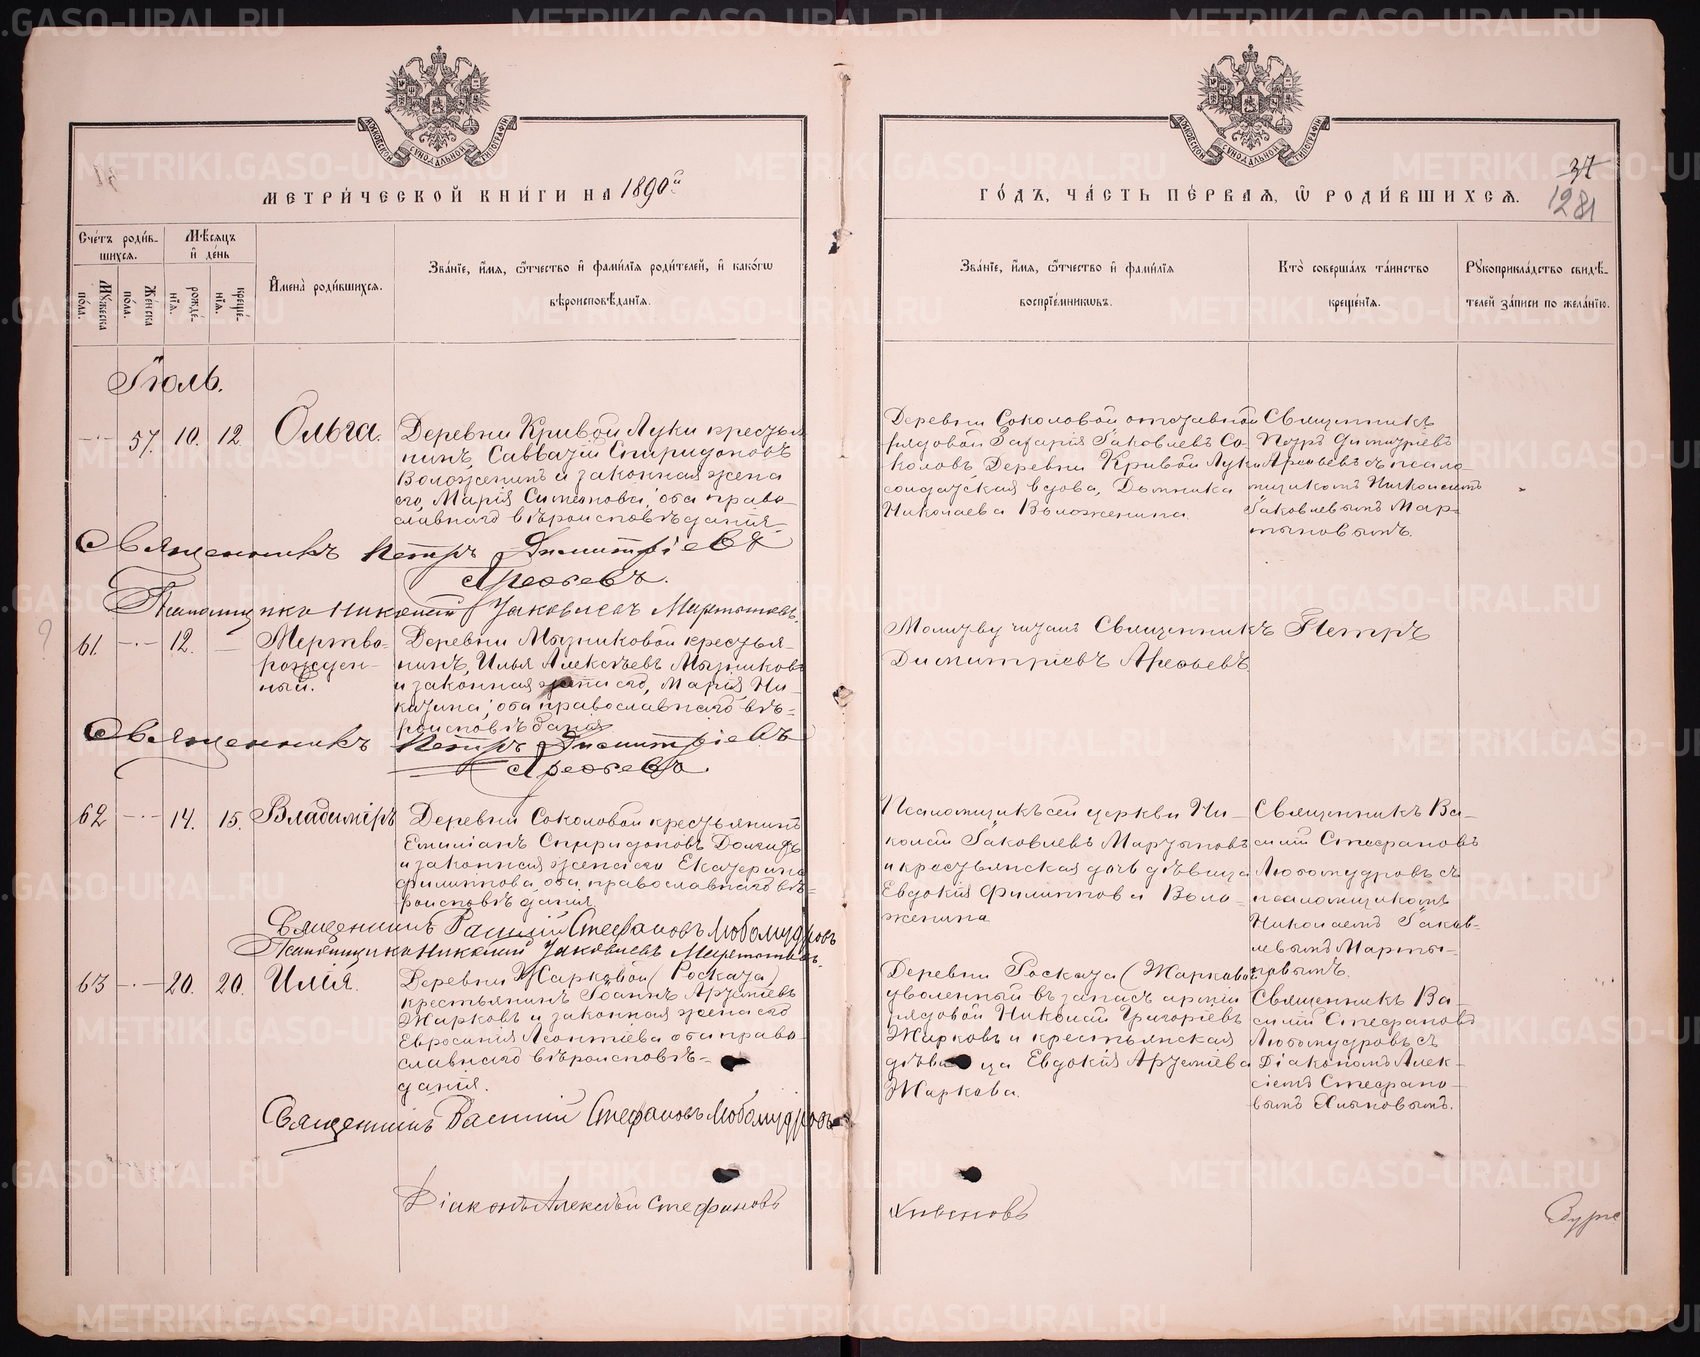 МЕТРИ́ЧЕСКОЙ КНИ́ГИ НА 1890й
ГО́ДЪ, ЧА́СТЬ ПЕ́РВАЯ, Ѽ РОДИ́ВШИХСѦ.
37
1281
Сче́тъ роди́в-
шихся.
Мѣ́сяцъ
и҆ де́нь
Му́жеска
по́ла.
Же́нска
по́ла.
рожде́-
нїѧ.
креще́-
нїѧ.
И҆мена̀ роди́вшихсѧ.
Зва́нїе, и҆́мѧ, ѻ҆́тчество и҆ фами́лїѧ роди́телей, и҆ како́гѡ
вѣроисповѣ́данїѧ.
Зва́нїе, и҆́мѧ, ѻ҆́тчество и҆ фами́лїѧ
воспрїе́мникѡвъ.
Кто̀ соверша́лъ та́инство
креще́нїѧ.
Рꙋкоприкла́дство свидѣ́-
телей за́писи по жела́нїю.
Іюль.
57. 10. 12. Ольга.
Деревни Кривой Луки крестья
нинъ, Савватій Спиридоновъ
Воложенинъ и законная жена
его, Марія Симонова; оба право-
славнаго вѣроисповѣданія
Деревни Соколовой отставной
рядовой Захарія Іаковлевъ Со-
коловъ Деревни Кривой Луки
солдатская вдова, Домника
Николаева Воложенина
Священникъ
Петръ Димитріевъ
Арефьевъ съ псало-
мщикомъ Николаемъ
Іаковлевымъ Мар-
тыновымъ.
Священникъ Петръ Димитріевъ
Арефьевъ.
Псаломщикъ Николай Іаковлевъ Мартыновъ.
61. 12. Мертво-
рожден-
ный.
Деревни Мызниковой крестья-
нинъ, Илья Алексѣевъ Мызниковъ
и законная жена его, Марія Ни-
китина; оба православнаго вѣ-
роисповѣданія
Молитву читалъ Священникъ Петръ
Димитріевъ Арефьевъ
Священникъ Петръ Димитріевъ
Арефьевъ.
62 14. 15. Владиміръ
Деревни Соколовой крестьянинъ
Емиліанъ Спиридоновъ
и законная жена его Екатерина
Филиппова, оба православнаго вѣ-
роисповѣданія
Псаломщикъ сей церкви Ни-
колай Іаковлевъ Мартыновъ
и крестьянская дочь дѣвица
Евдокія Филиппова Воло-
женина
Священникъ Ва-
силій Стефановъ
Любомудровъ съ
псаломщикомъ
Николаемъ Іаков-
левымъ Марты-
новымъ.
Священникъ Василій Стефановъ Любомудровъ
Псаломщикъ Николай Іаковлевъ Мартыновъ.
63 20. 20. Илія.
Деревни Жарковой (Роската)
крестьянинъ Іоаннъ Артеміевъ
Жарковъ и законная жена его
Евросинія Леонтіева оба право-
славнаго вѣроисповѣ-
данія.
Деревни Роската (Жарковой
уволенный въ запасъ арміи
рядовой Николай Григоріевъ
Жарковъ и крестьянская
дѣвица Евдокія Артеміева
Жаркова.
Священникъ Ва-
силій Стефановъ
Любомудровъ съ
Діакономъ Алек-
сіемъ Стефано-
вымъ
Священникъ Василій Стефановъ Любомудровъ
Діаконъ Алексѣй Стефановъ
METRIKI.GASO-URAL.RU